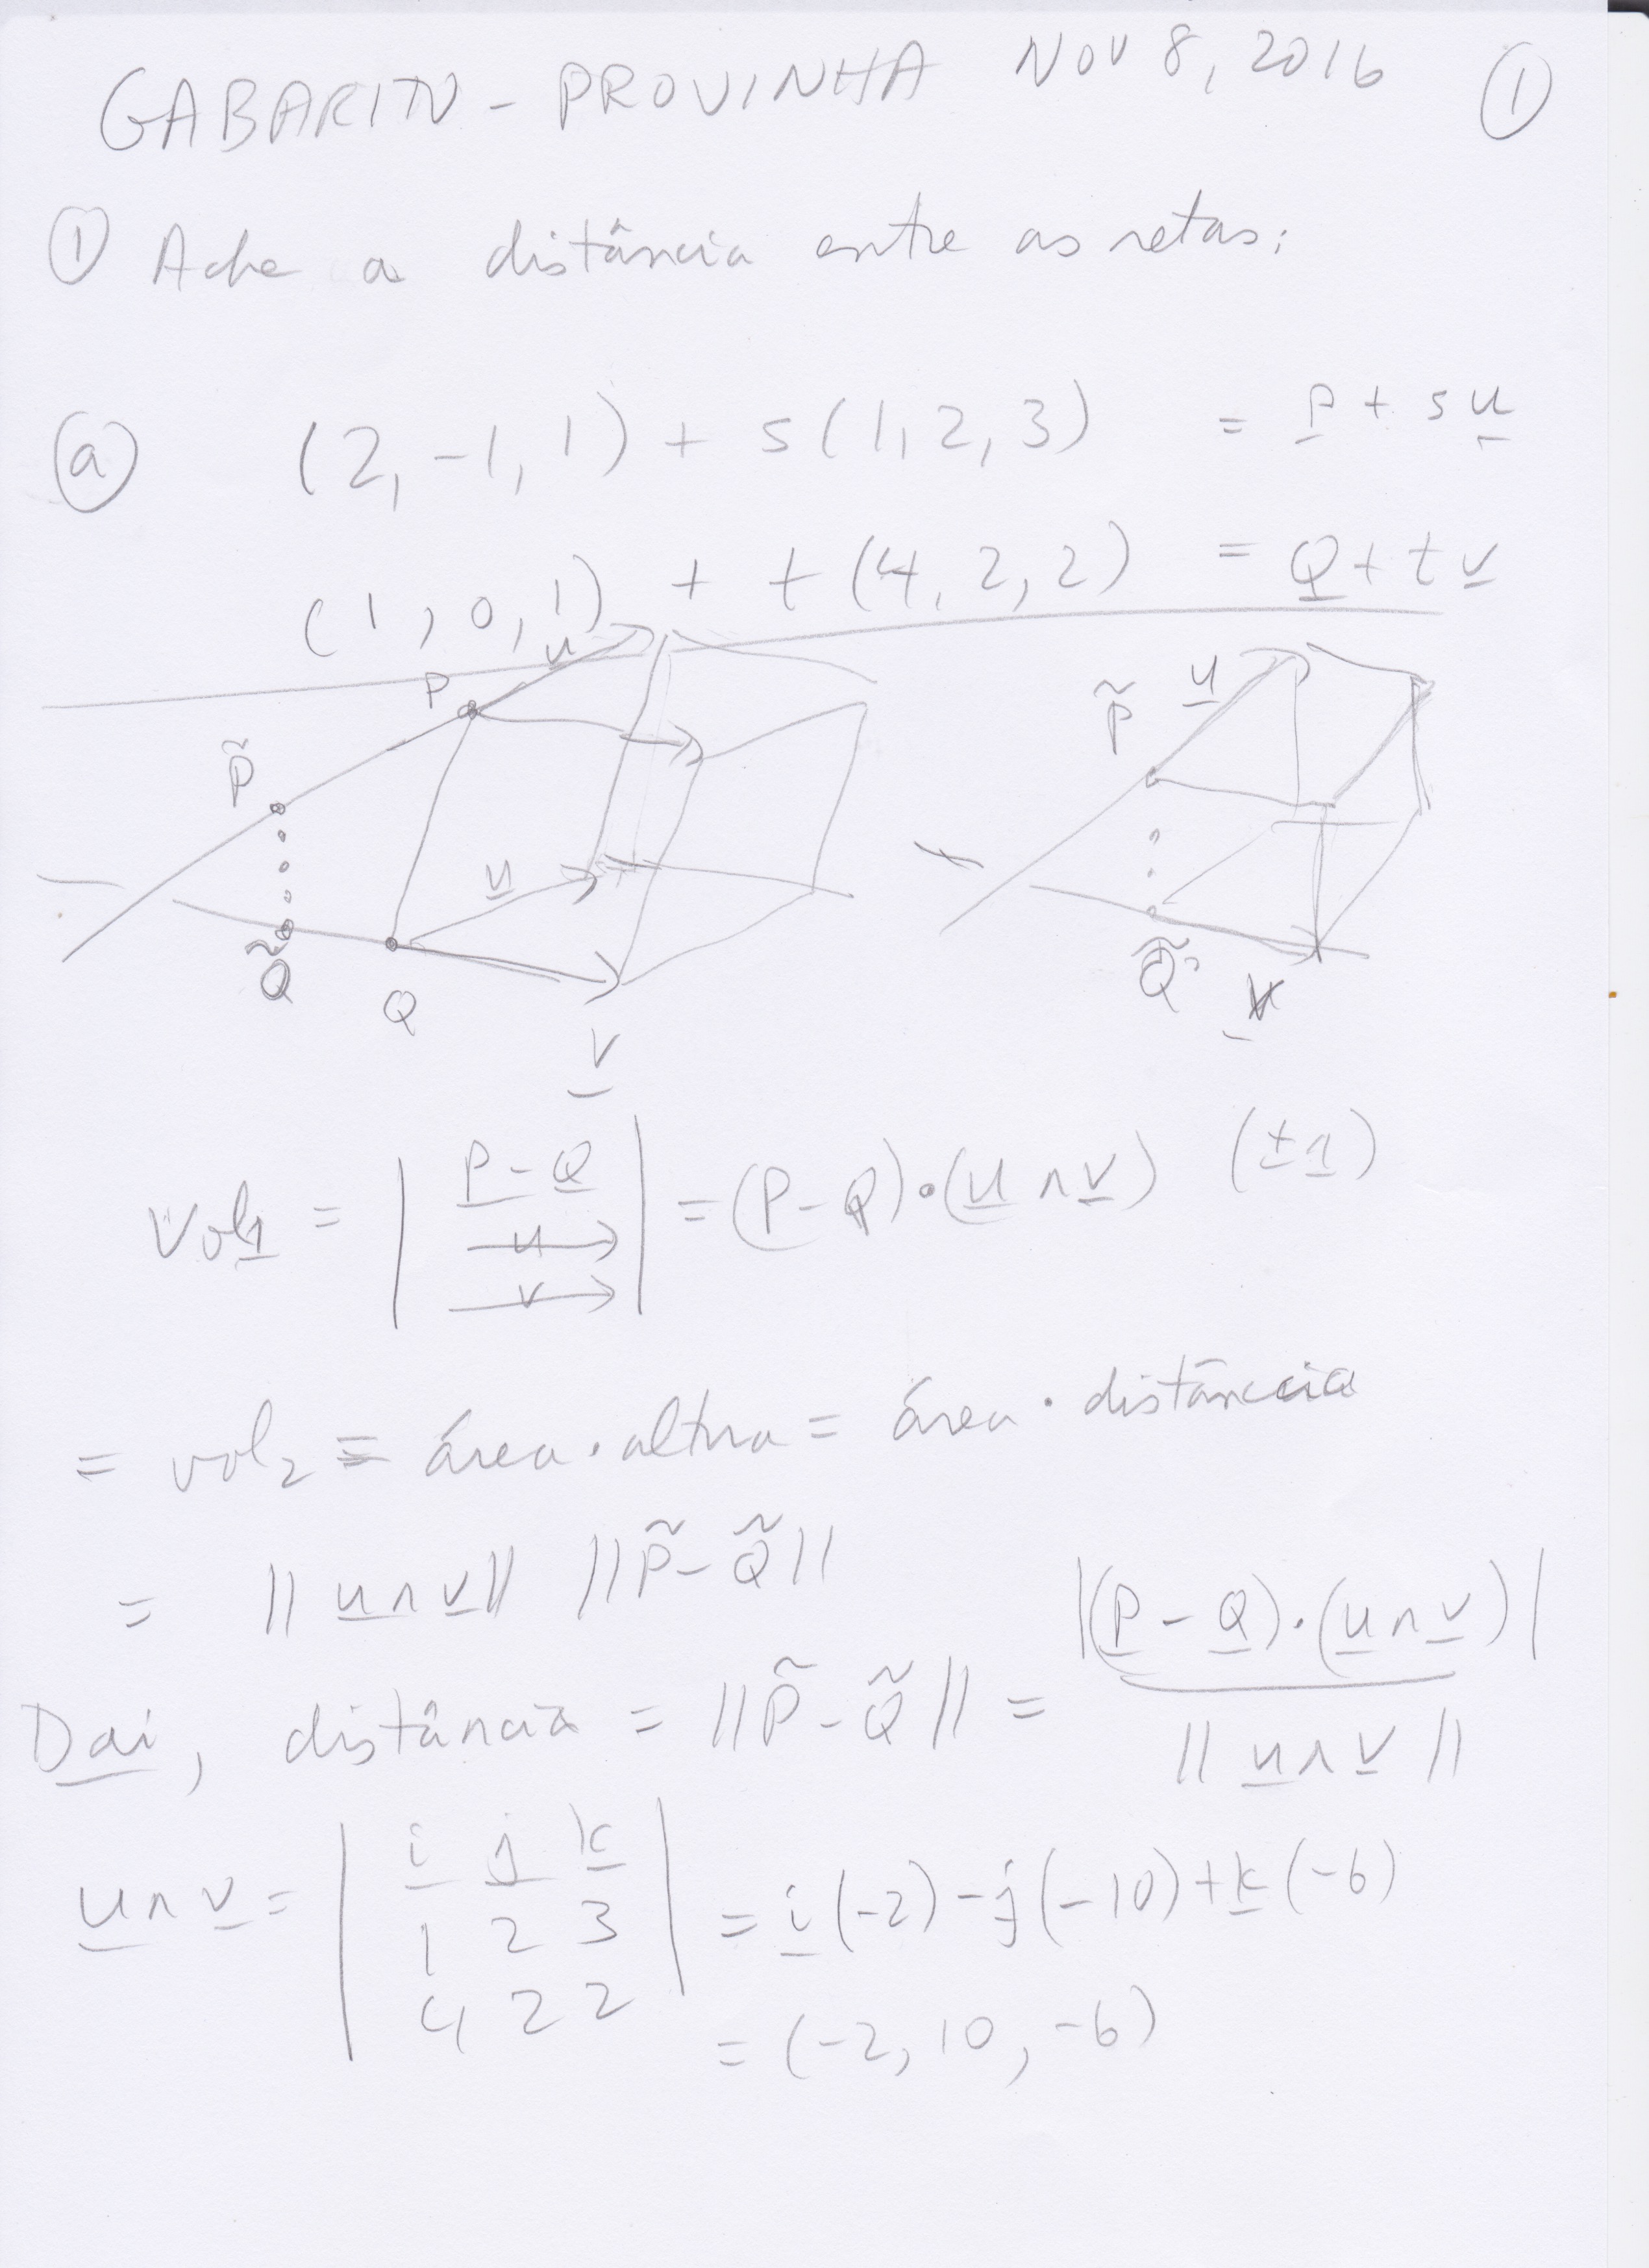 GABARITO - PROVINHA NOV 8, 2016 ①
① Ache a distância entre as retas:
ⓐ (2, -1, 1) + s(1, 2, 3) = P + s u
(1, 0, 1) + t(4, 2, 2) = Q + t v
u
P
P̃
u
Q̃
Q
v
P̃ u
Q̃
v
Vol1 = | P - Q u v | = (P - Q)·(u ∧ v) (±1)
= vol2 = área · altura = área · distância
= ||u ∧ v|| ||P̃ - Q̃||
Daí, distância = ||P̃ - Q̃|| = |(P - Q)·(u ∧ v)| / ||u ∧ v||
u ∧ v = | i j k 1 2 3 4 2 2 | = i(-2) - j(-10) + k(-6)
= (-2, 10, -6)